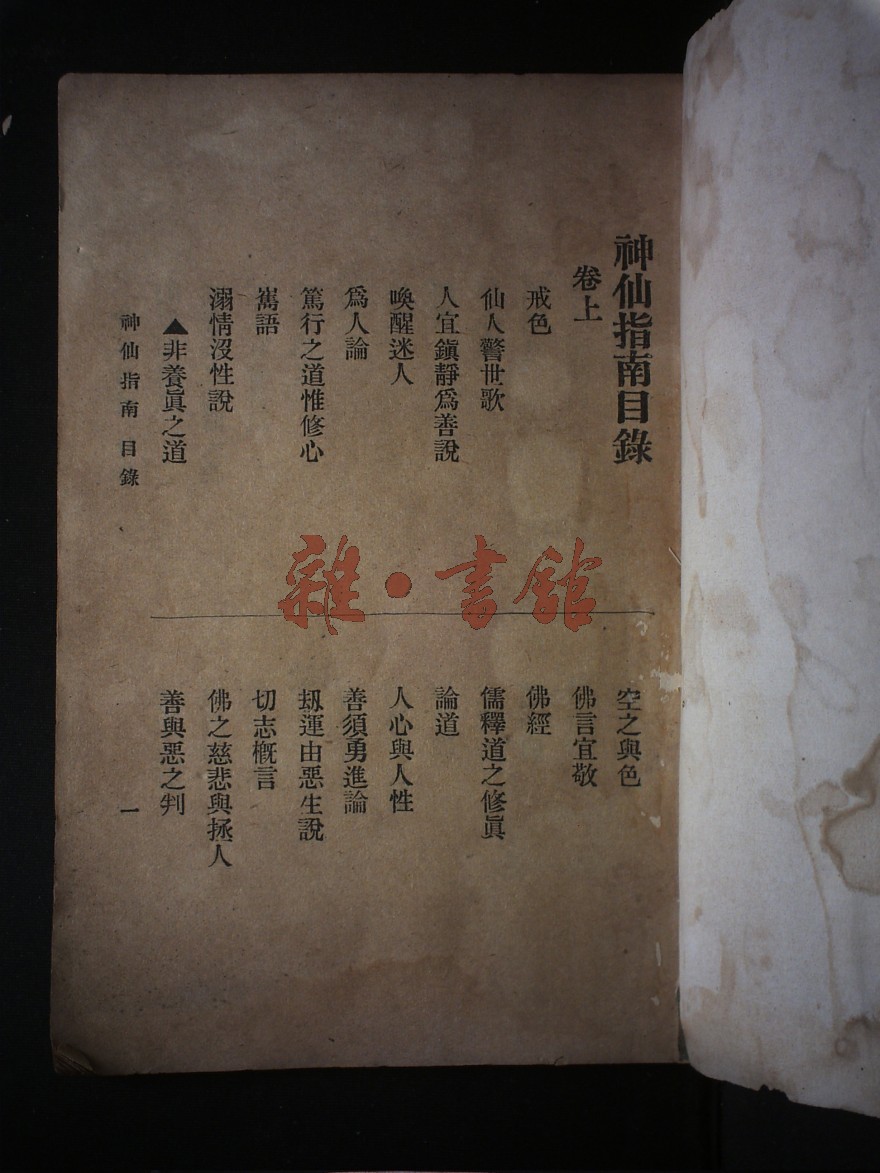 神仙指南目錄
卷上
戒色
仙人警世歌
人宜鎭靜爲善說
喚醒迷人
爲人論
篤行之道惟修心
寯語
溺情沒性說
▲非養眞之道
空之與色
佛言宜敬
佛經
儒釋道之修眞
論道
人心與人性
善須勇進論
刼運由惡生說
切志槪言
佛之慈悲與拯人
善與惡之判
神仙指南 目錄
一
雜·書館